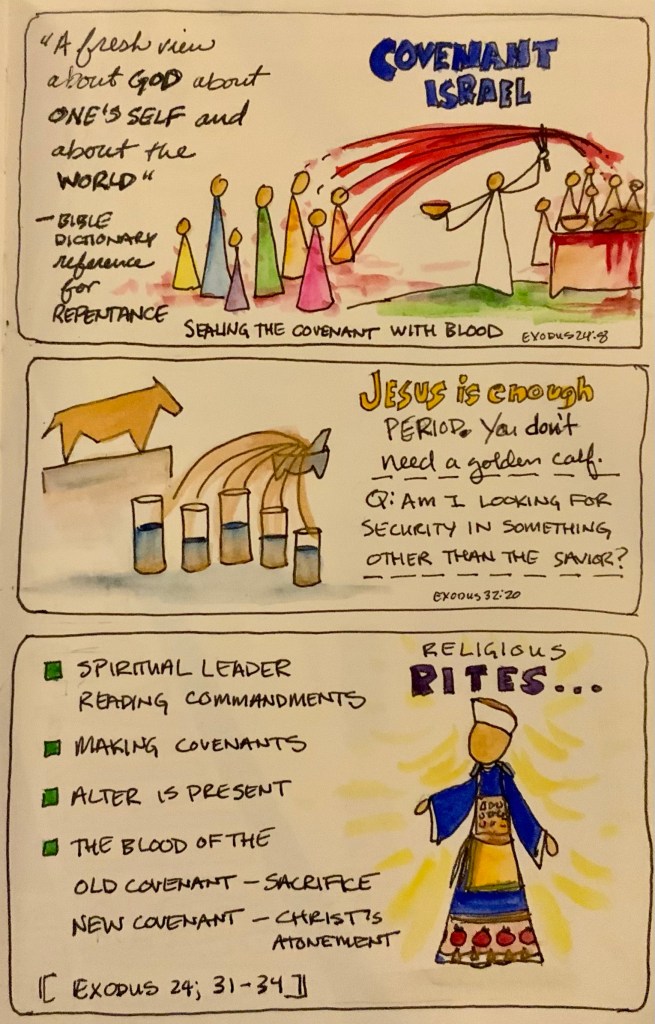 "A fresh view
about GOD about
ONE'S SELF and
about the
WORLD"
— BIBLE
DICTIONARY
reference
for
REPENTANCE
COVENANT
ISRAEL
SEALING THE COVENANT WITH BLOOD
EXODUS 24:8
JESUS is enough
PERIOD. You don't
need a golden calf.
Q: AM I LOOKING FOR
SECURITY IN SOMETHING
OTHER THAN THE SAVIOR?
EXODUS 32:20
RELIGIOUS
RITES...
SPIRITUAL LEADER
READING COMMANDMENTS
MAKING COVENANTS
ALTER IS PRESENT
THE BLOOD OF THE
OLD COVENANT — SACRIFICE
NEW COVENANT — CHRIST'S
ATONEMENT
[[ EXODUS 24; 31-34 ]]